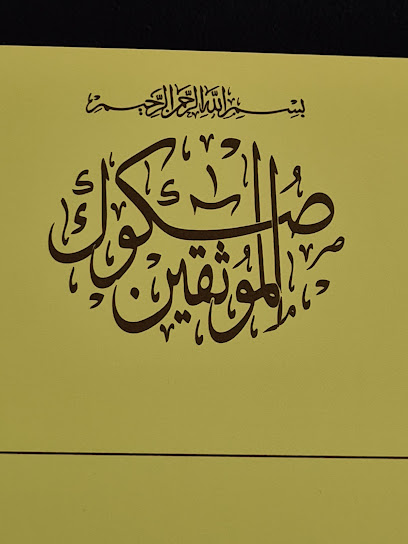 بسم الله الرحمن الرحيم
صكوك
الموثقين